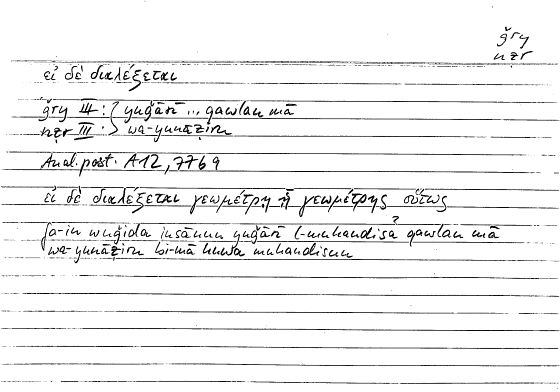 ǧry
nẓr
εἰ δὲ διαλέξεται
ǧry III : } yuǧārī ... qawlan mā
nẓr III : } wa-yunāẓiru
Anal. post. A12, 77b9
εἰ δὲ διαλέξεται γεωμέτρῃ ᾗ γεωμέτρης οὕτως
fa-in wuǧida insānun yuǧārī l-muhandisa? qawlan mā
wa-yunāẓiru bi-mā huwa muhandisun